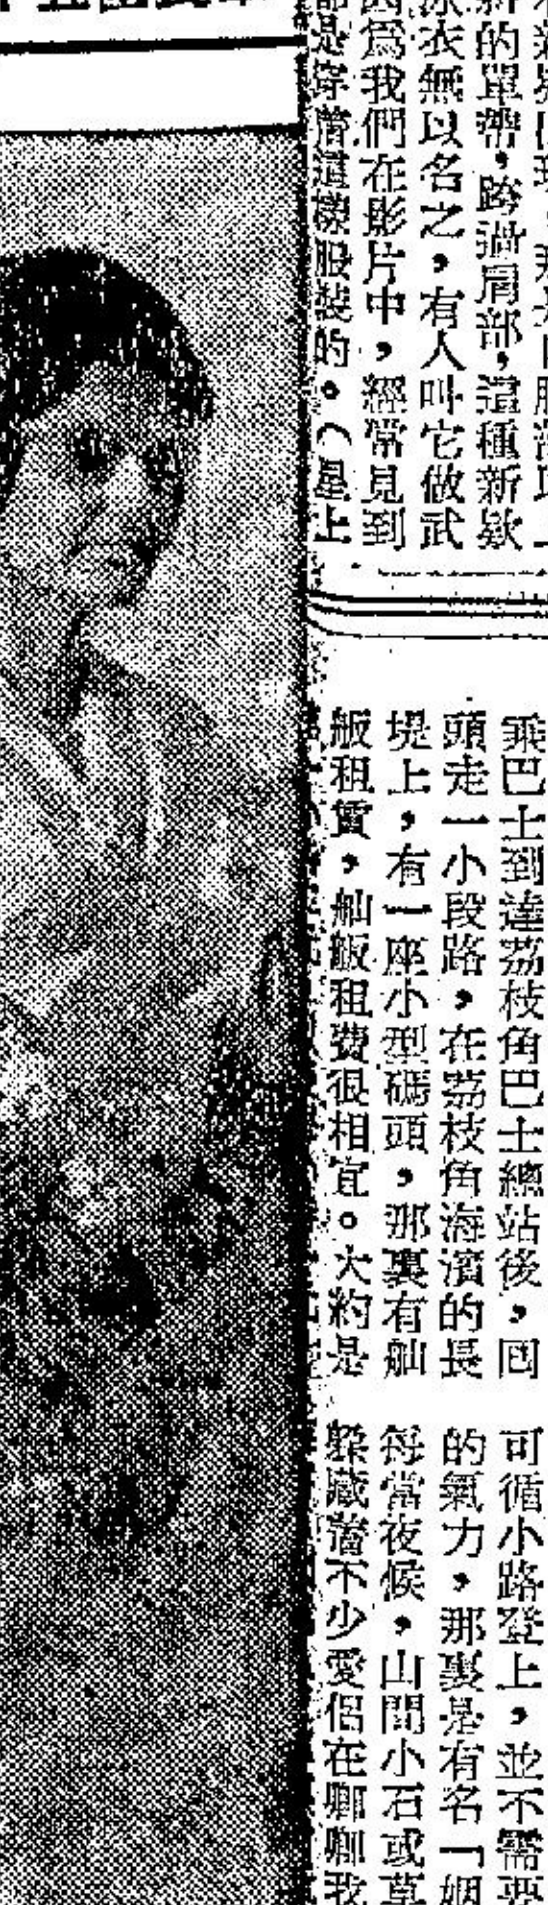 新的單帶，跨過肩部，這種新欵
泳衣無以名之，有人叫它做武
因爲我們在影片中，經常見到
都是穿着這樣服裝的。（星上
乘巴士到達荔枝角巴士總站後，回
頭走一小段路，在荔枝角海濱的長
堤上，有一座小型碼頭，那裏有舢
舨租賃，舢舨租費很相宜。大約是
可循小路登上，並不需要
的氣力，那裏是有名「姻
每當夜候，山間小石或草
躱藏着不少愛侶在卿卿我